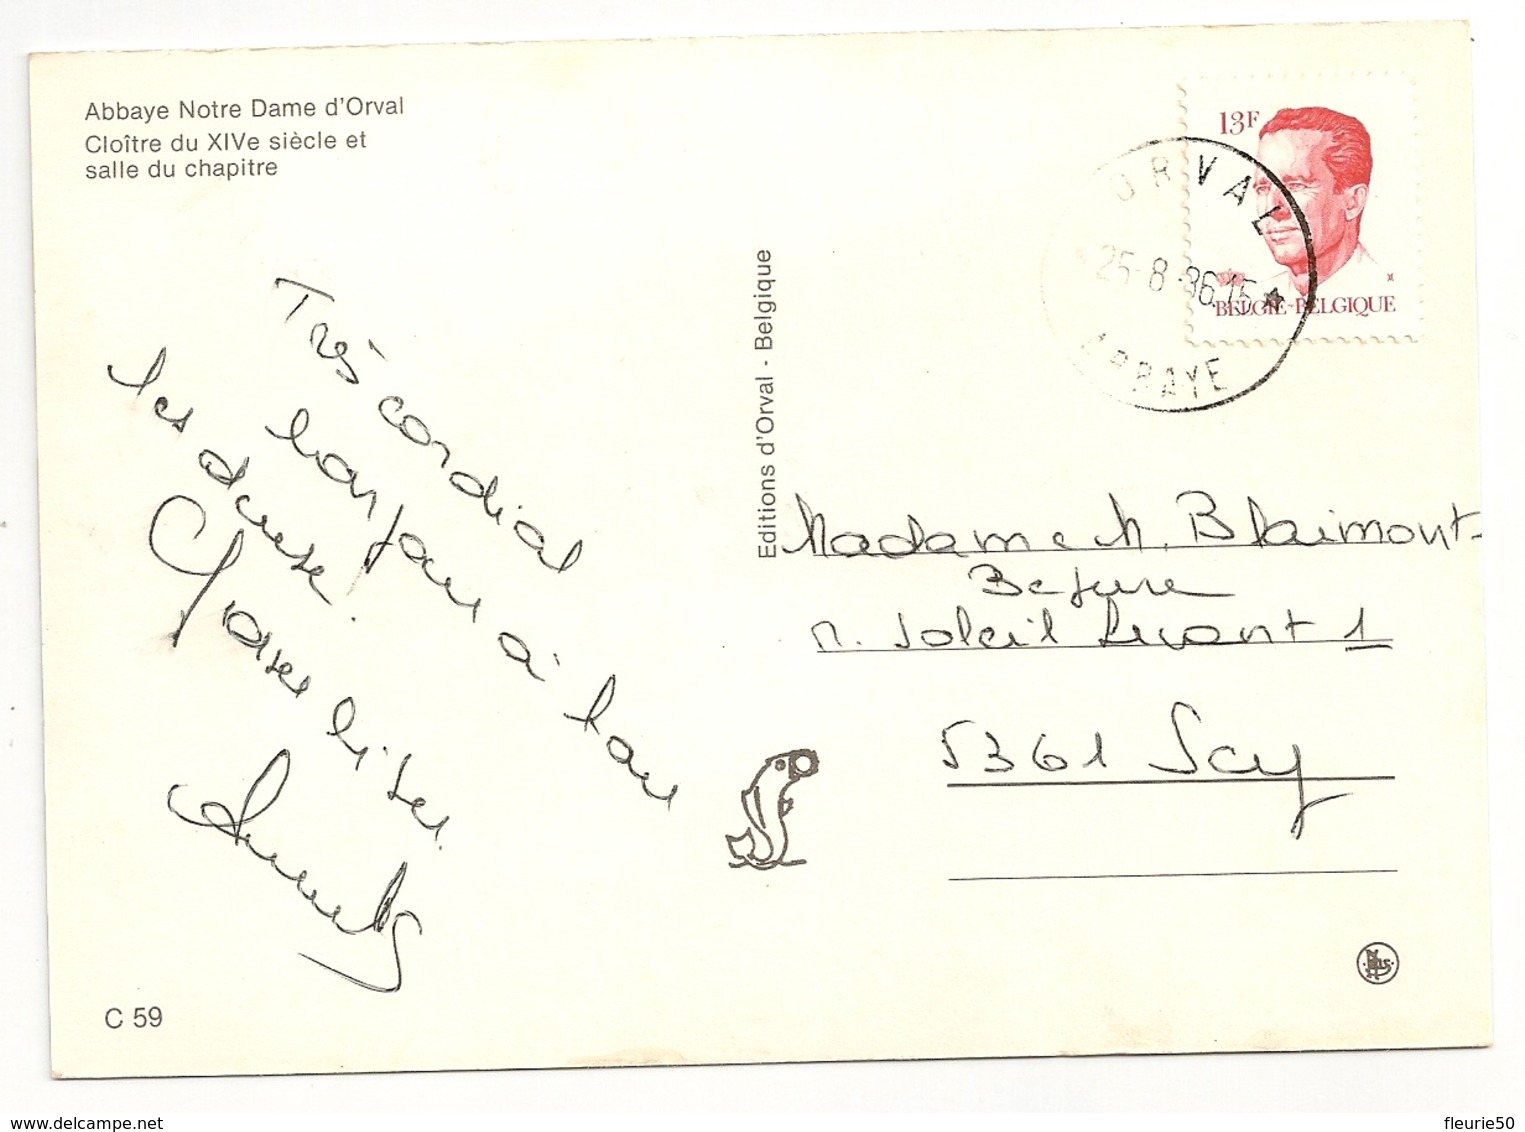 Abbaye Notre Dame d'Orval
Cloître du XIVe siècle et
salle du chapitre
Très cordial
bonjour à tous
les deux!
Gros bises.
Editions d'Orval - Belgique
13F
BELGIE-BELGIQUE
ORVAL
25-8-86.15
ABBAYE
Madame M. Blaimont-
r. Soleil Levant 1
5361 Scy
C 59
fleurie50